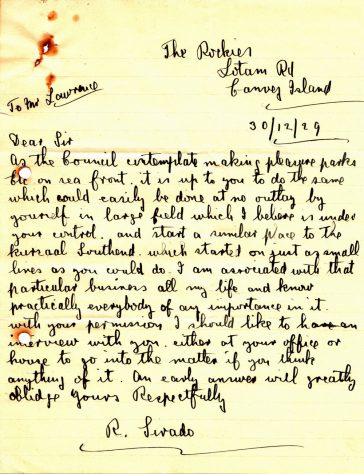 The Rockies
Lotam Rd
Canvey Island
To Mr Lawrence
30/12/29
Dear Sir
As the Council contemplate making pleasure parks
etc on sea front. it is up to you to do the same
which could easily be done at no outlay by
yourself in large field which I believe is under
your control. and start a similar place to the
Kursaal Southend. which started on just as small
lines as you could do. I am associated with that
particular business all my life and know
practically everybody of any importance in it.
with your permission I should like to have an
interview with you. either at your office or
house to go into the matter if you think
anything of it. An early answer will greatly
oblidge Yours Respectfully
R.